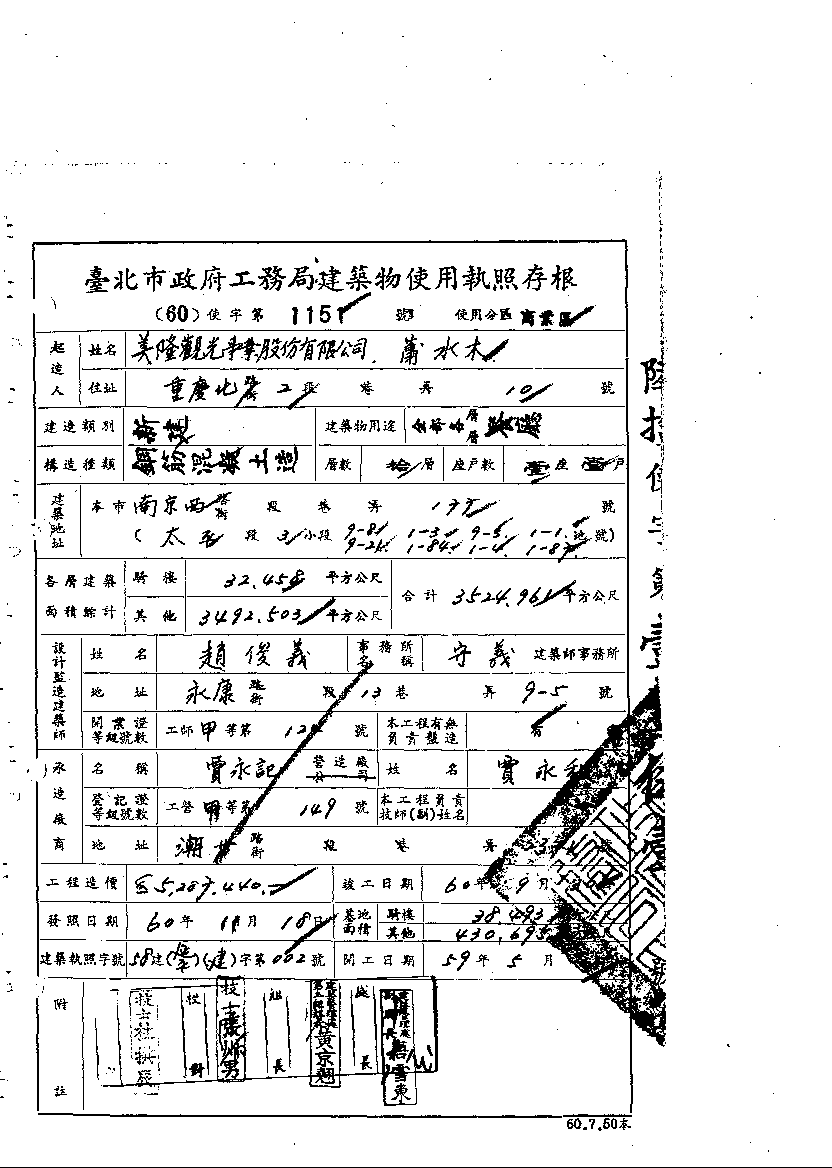 臺北市政府工務局建築物使用執照存根
(60)使字第 1151 號 使用分區 商業區
起造人 姓名 美隆觀光事業股份有限公司 蕭水木
住址 重慶北路2段 巷 弄 10 號
建造類別 新建 建築物用途
構造種類 鋼筋混凝土造 層數 拾層 座戶數 壹座壹戶
建築地址 本市南京西路街 段 巷 弄 177 號
(太平段3小段 9-81 1-3 9-5 1-1 地號)
9-26 1-84 1-4 1-87
各層建築面積餘計 騎樓 32.458 平方公尺 合計 3524.961 平方公尺
其他 3492.503 平方公尺
設計監造建築師 姓名 趙俊義 事務所名稱 守義 建築師事務所
地址 永康路街 段 13巷 弄 9-5 號
開業證等級號數 工師甲等第 號 本工程有無負責監造 有
承造廠商 名稱 賈永記 營造廠公司 姓名 賈永
登記證等級號數 工營甲等第 149 號 本工程負責技師(副)姓名
地址 潮州路街 段 巷 弄
工程造價 5,287,440.- 竣工日期 60年9月
發照日期 60年11月18日 基地面積 騎樓 38.493
其他 430.695
建築執照字號 58建( )(建)字第002號 開工日期 59年5月
附註
校對 組長 處長
技士張師男
黃京翹
60.7.50本